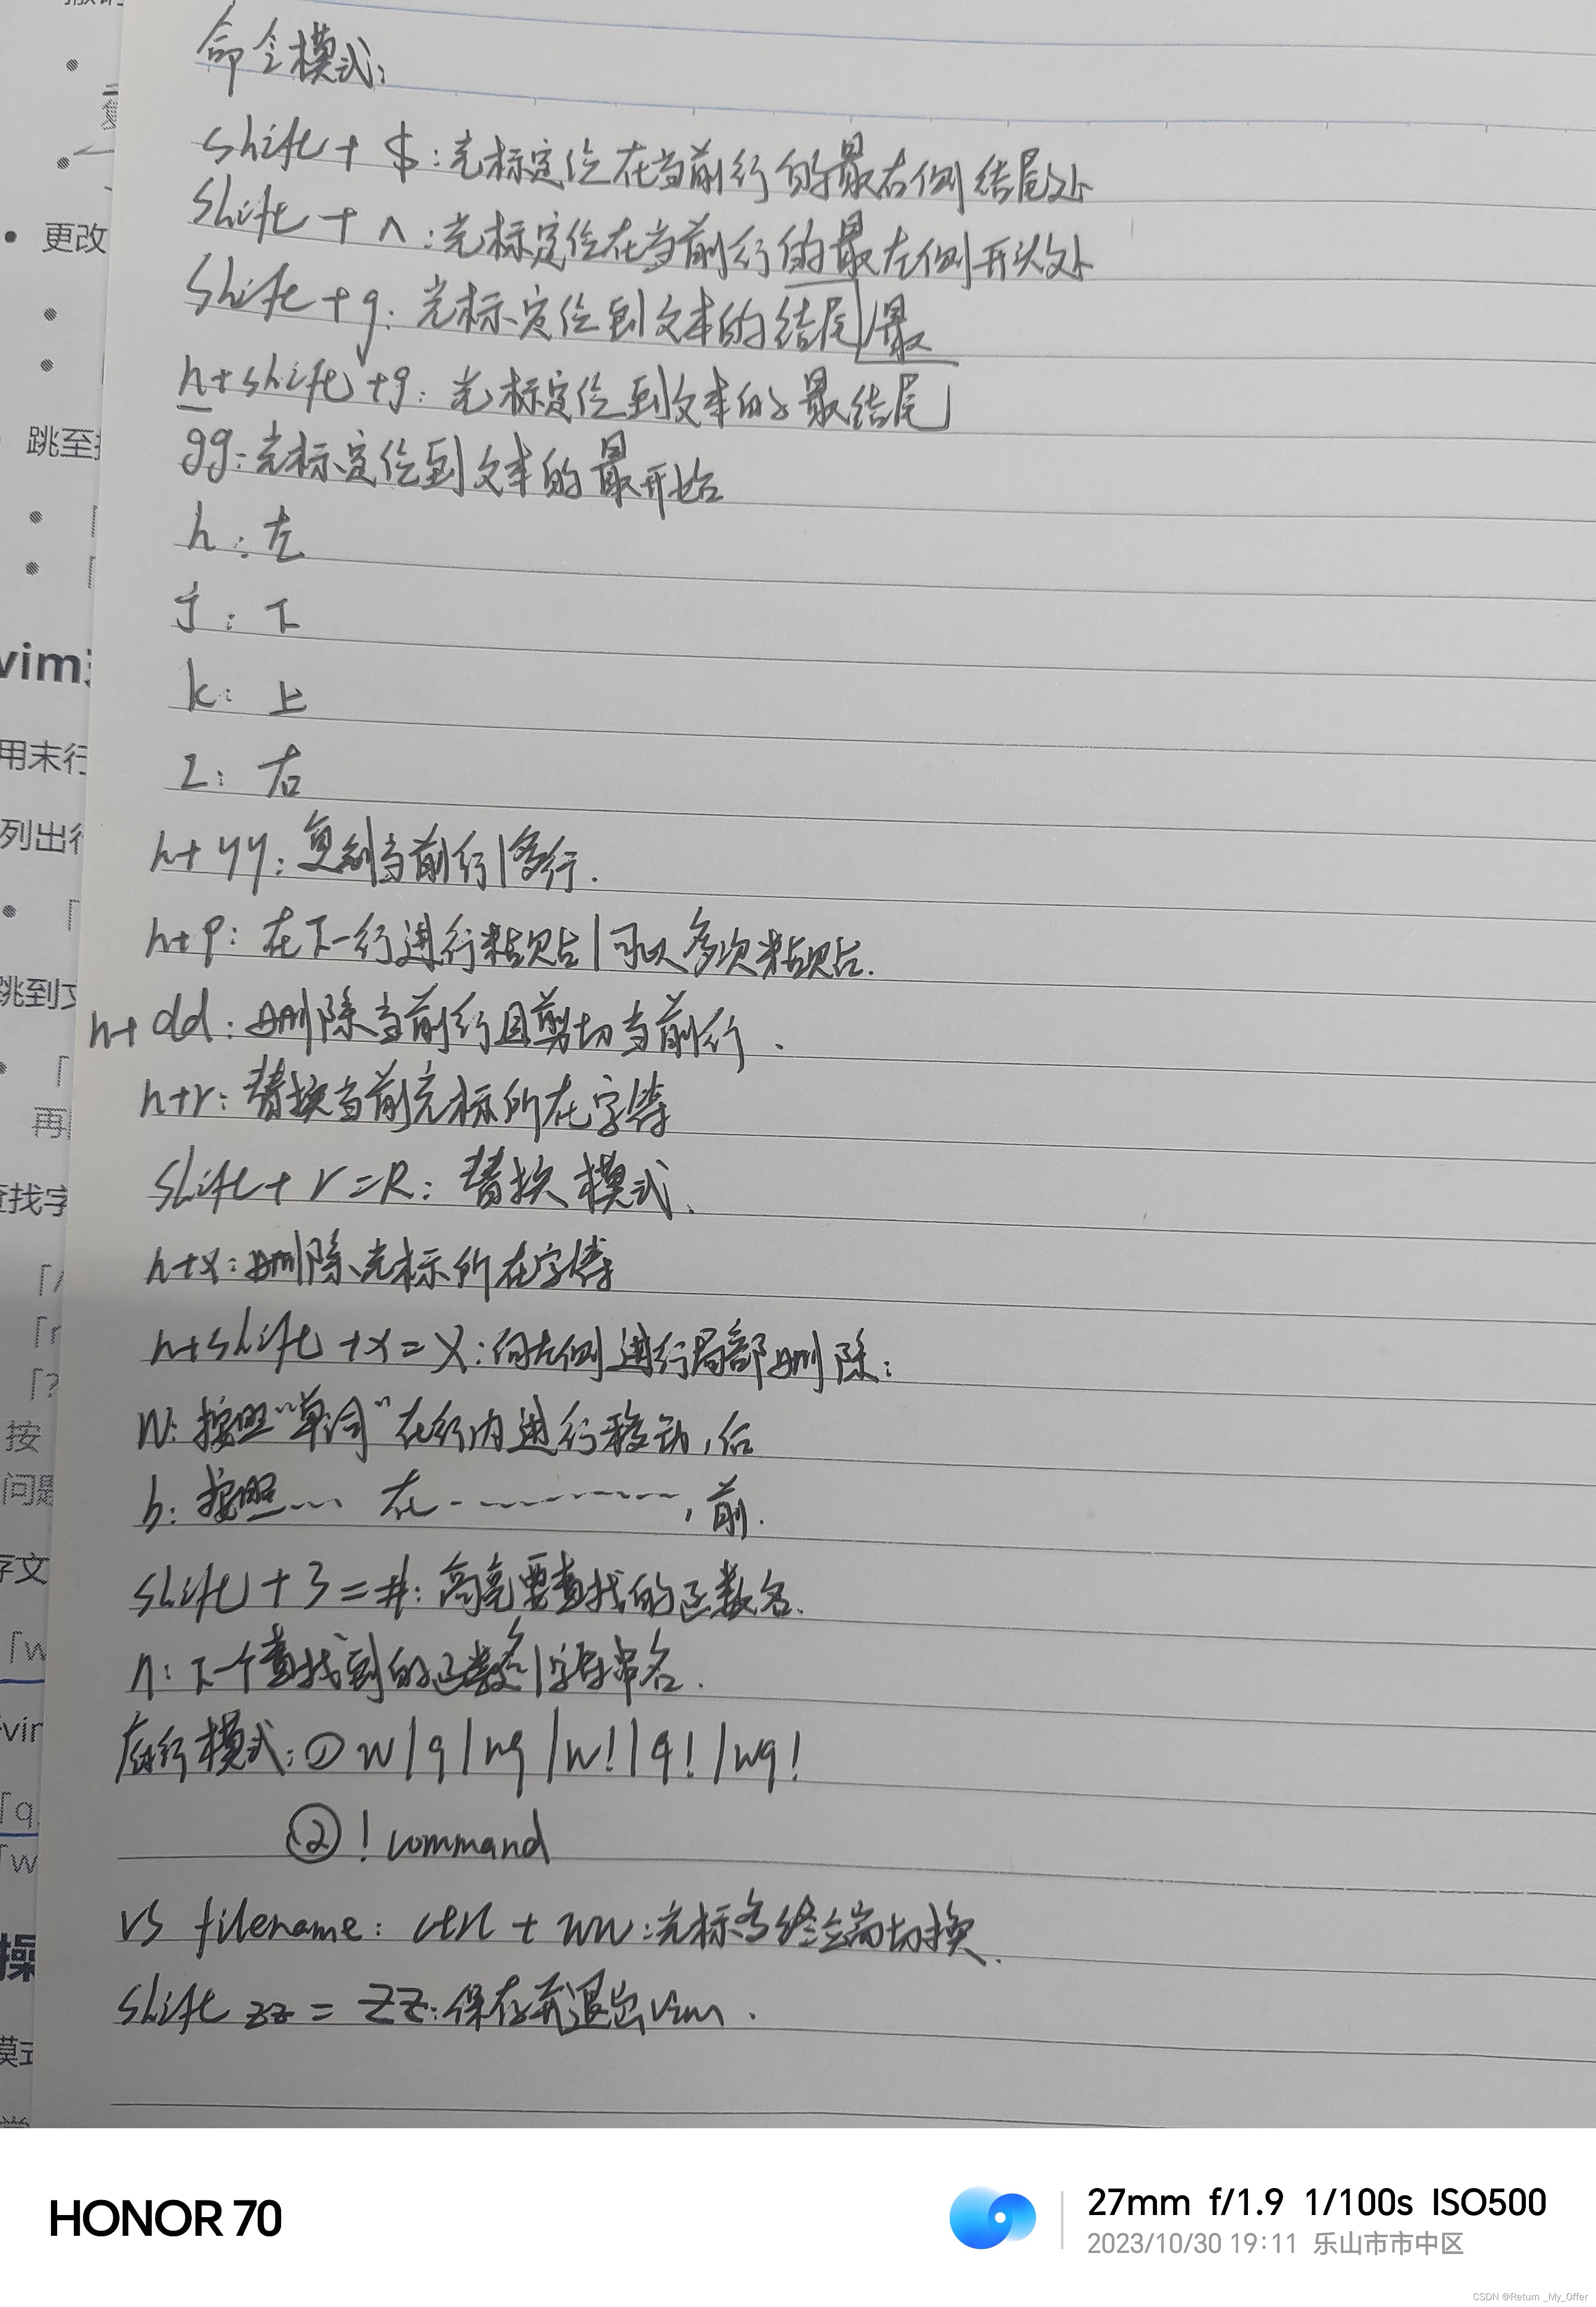 命令模式:
shift + $ : 光标定位在当前行的最右侧结尾处
shift + ^ : 光标定位在当前行的最左侧开头处
shift + g : 光标定位到文本的结尾/最
n+shift+g : 光标定位到文本的最结尾
gg: 光标定位到文本的最开始
h : 左
j : 下
k : 上
l : 右
n+yy: 复制当前行|多行.
n+p: 在下一行进行粘贴|可以多次粘贴.
n+dd: 删除当前行且剪切当前行.
n+r: 替换当前光标所在字符
shift+r=R: 替换模式.
n+x: 删除光标所在字符
n+shift+x=X: 向左侧进行局部删除:
W: 按照“单词”在行内进行移动,后
b: 按照... 在----------,前.
shift+3=#: 高亮要查找的函数名.
n: 下一个查找到的函数名|字符串名.
底行模式: ① w|q|wq|w!|q!|wq!
② ! command
vs filename: ctrl + ww: 光标多终端切换.
shift zz = ZZ: 保存并退出vim.
更改
跳至
vim
用末行
列出行
跳到文
再
查找字
「/
「?
按
问题
存文
「w
vim
「q
「w
操
模式
HONOR 70
27mm f/1.9 1/100s ISO500
2023/10/30 19:11 乐山市市中区
CSDN @Return _My_Offer